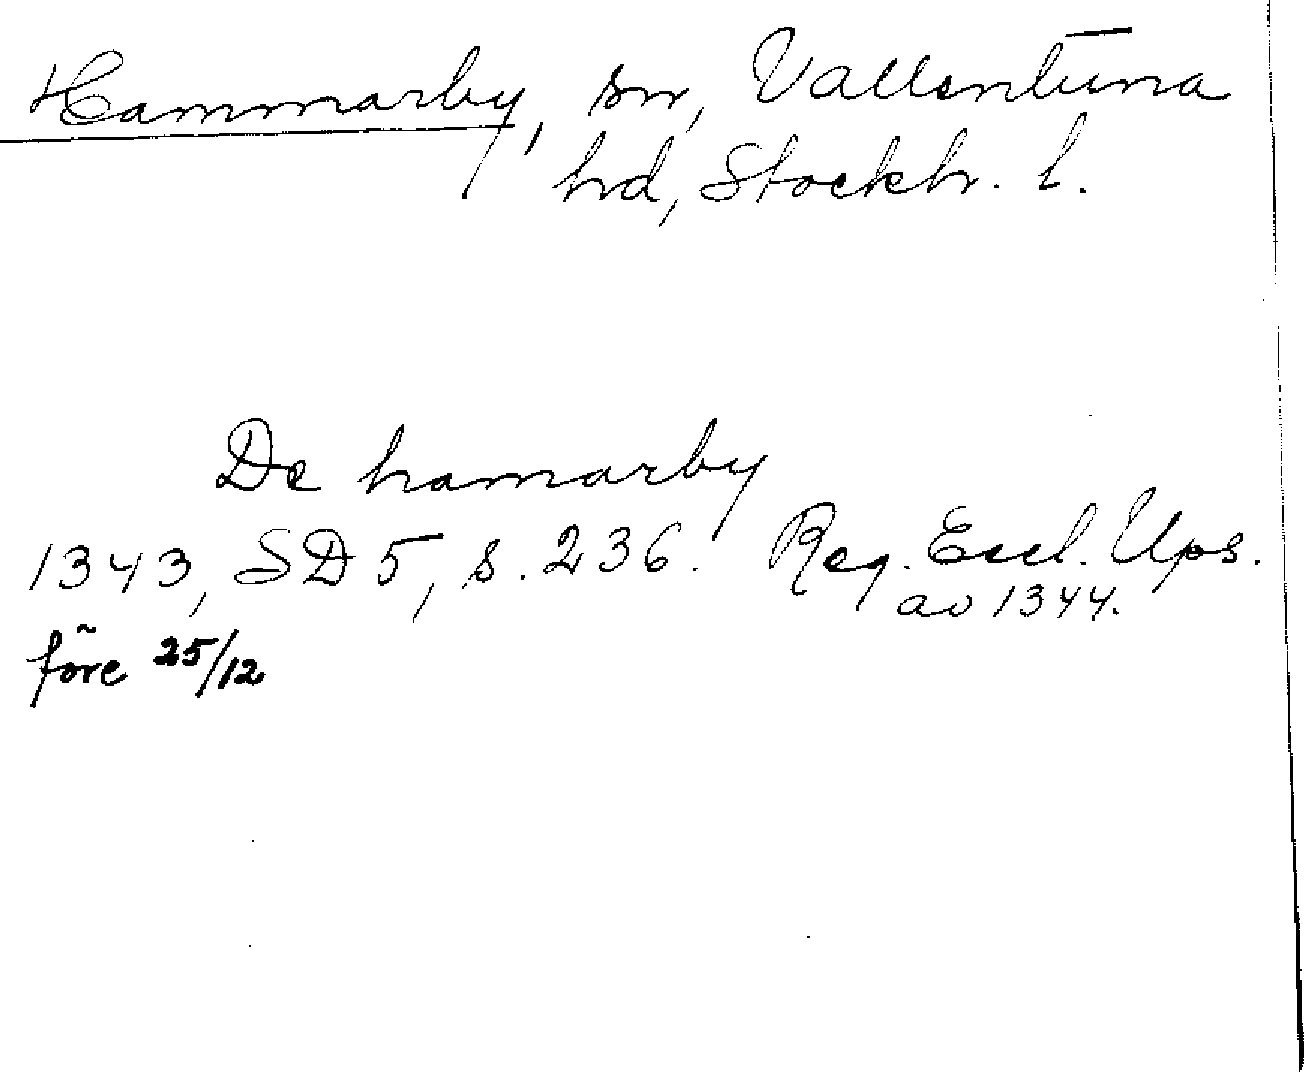 Hammarby, sn, Vallentuna
hd, Stockh. l.
De hamarby
1343, SD 5, s. 236. Reg. Eccl. Ups.
av 1344.
före 25/12